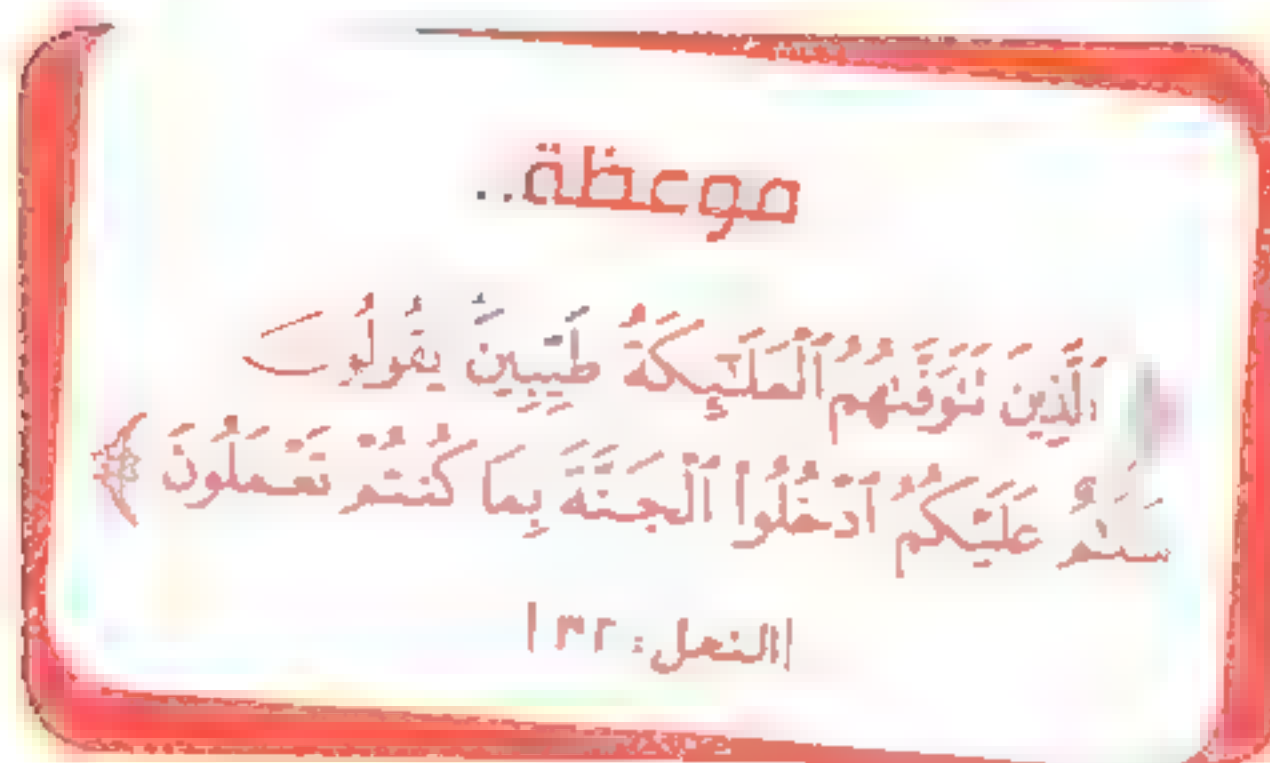 موعظة..
﴿ ٱلَّذِينَ تَتَوَفَّىٰهُمُ ٱلْمَلَـٰٓئِكَةُ طَيِّبِينَ يَقُولُونَ
سَلَـٰمٌ عَلَيْكُمُ ٱدْخُلُوا۟ ٱلْجَنَّةَ بِمَا كُنتُمْ تَعْمَلُونَ ﴾
|النحل: ٣٢|